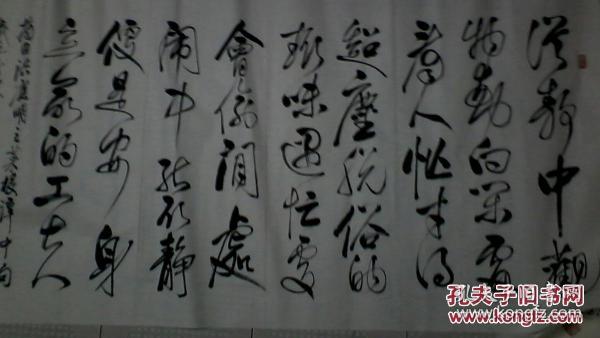 從靜中觀
物動向閑處
看人忙才得
超塵脫俗的
趣味遇忙處
會偷閒處
鬧中能取靜
便是安身
立命的工夫
摘自洪應明之菜根譚中句
孔夫子旧书网
www.kongfz.com